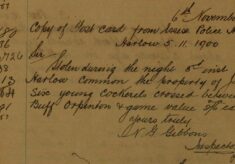 6th November
Copy of Post card from Police
Harlow 5.11.1900
Sir
Stolen during the night 5th inst
Harlow Common the property of
Six young Cockerels crossed between
Buff Orpington & game value
Yours truly
Gibbons
Inspector